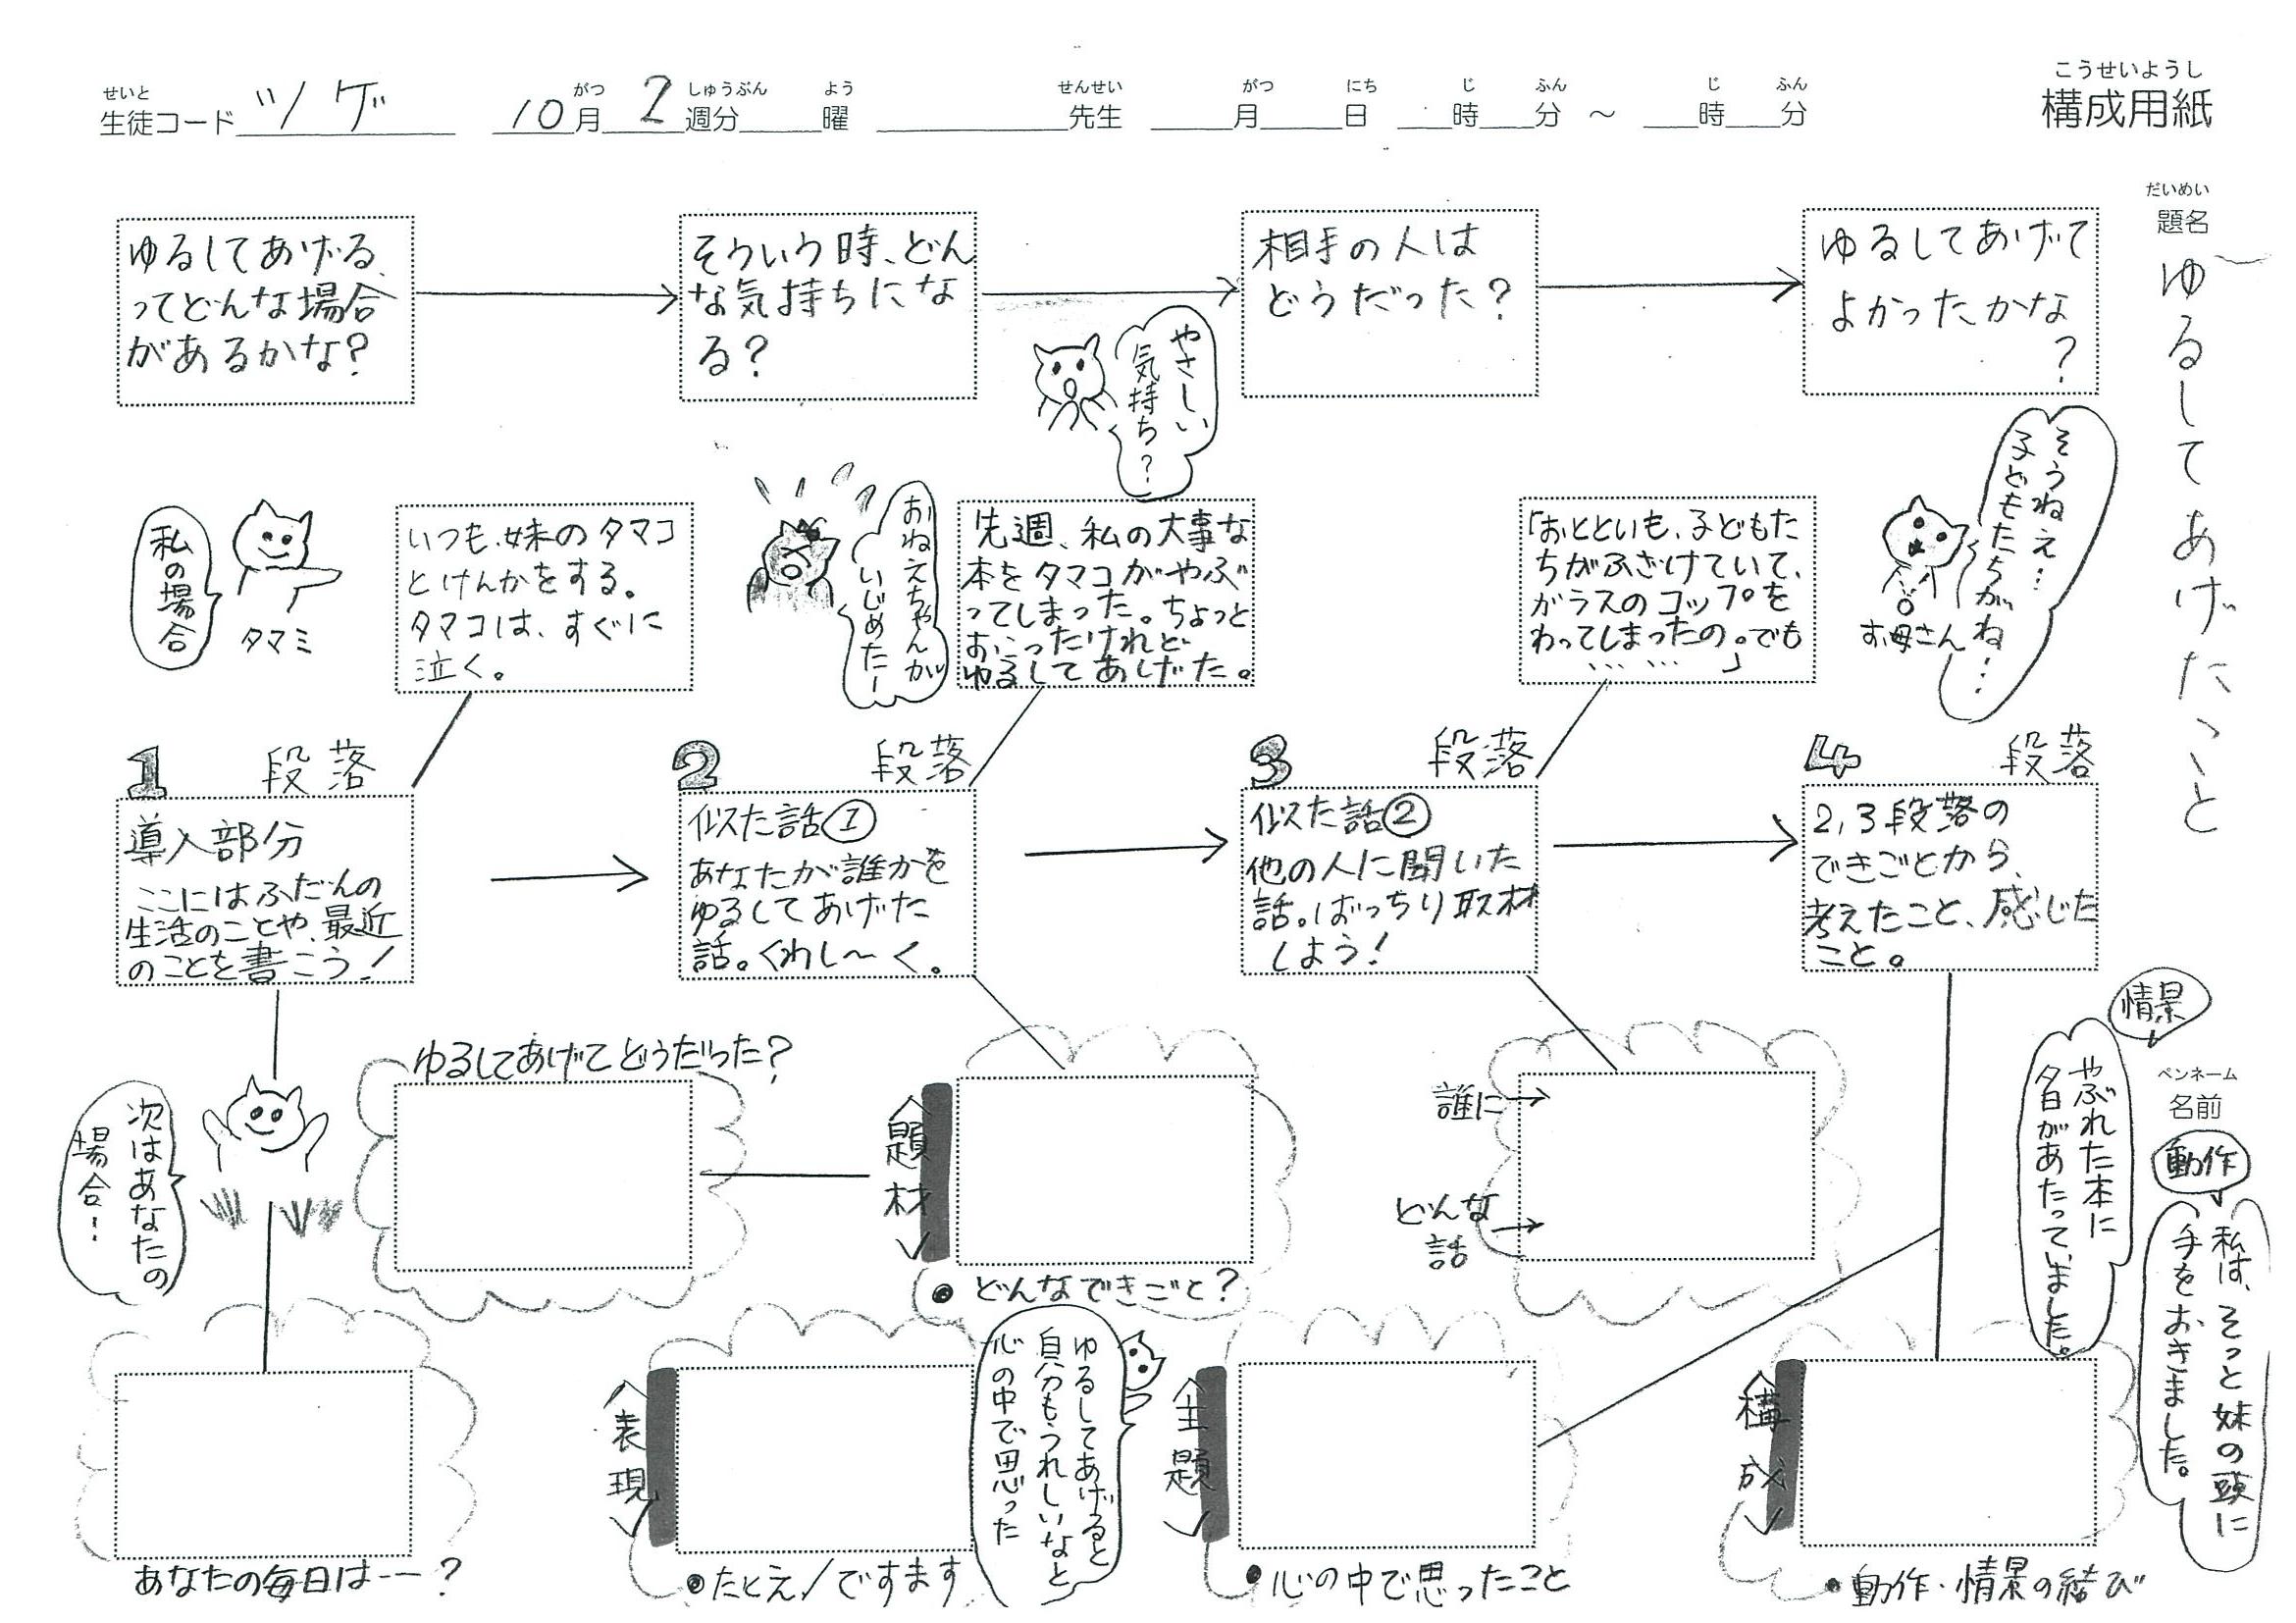 せいと
生徒コード ツゲ
がつ しゅうぶん よう
10月 2週分 曜
せんせい
先生
がつ にち じ ふん じ ふん
月 日 時 分 ～ 時 分
こうせいようし
構成用紙
だいめい
題名
ゆるしてあげたこと
ゆるしてあげる、
ってどんな場合
があるかな?
そういう時、どん
な気持ちにな
る?
相手の人は
どうだった?
ゆるしてあげて
よかったかな
?
やさしい
気持ち?
私の場合
タマミ
いつも、妹のタマコ
とけんかをする。
タマコは、すぐに
泣く。
おねえちゃんが
いじめたー
先週、私の大事な
本をタマコがやぶ
ってしまった。ちょっと
おこったけれど
ゆるしてあげた。
「おとといも、子どもた
ちがふざけていて、
ガラスのコップを
わってしまったの。でも
……」
そうねえ…
子どもたちがね…
お母さん
1 段落
導入部分
ここにはふだんの
生活のことや、最近
のことを書こう!
2 段落
似た話①
あなたが誰かを
ゆるしてあげた
話。くわし～く。
3 段落
似た話②
他の人に聞いた
話。ばっちり取材
しよう!
4 段落
2,3段落の
できごとから、
考えたこと、感じた
こと。
次はあなたの
場合…
ゆるしてあげてどうだった?
<題材>
●どんなできごと?
誰に→
どんな→
話
情景
やぶれた本に
夕日があたっていました。
ペンネーム
名前
動作
私は、そっと妹の頭に
手をおきました。
あなたの毎日は--?
<表現>
●たとえ/ですます
ゆるしてあげると
自分もうれしいなと
心の中で思った
<主題>
●心の中で思ったこと
<構成>
●動作・情景の結び